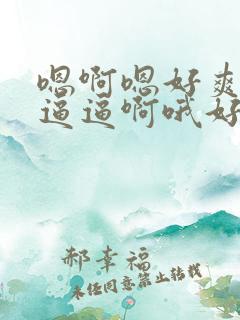 嗯啊嗯好爽
逼逼啊哦好
郝幸福
未经同意禁止转载